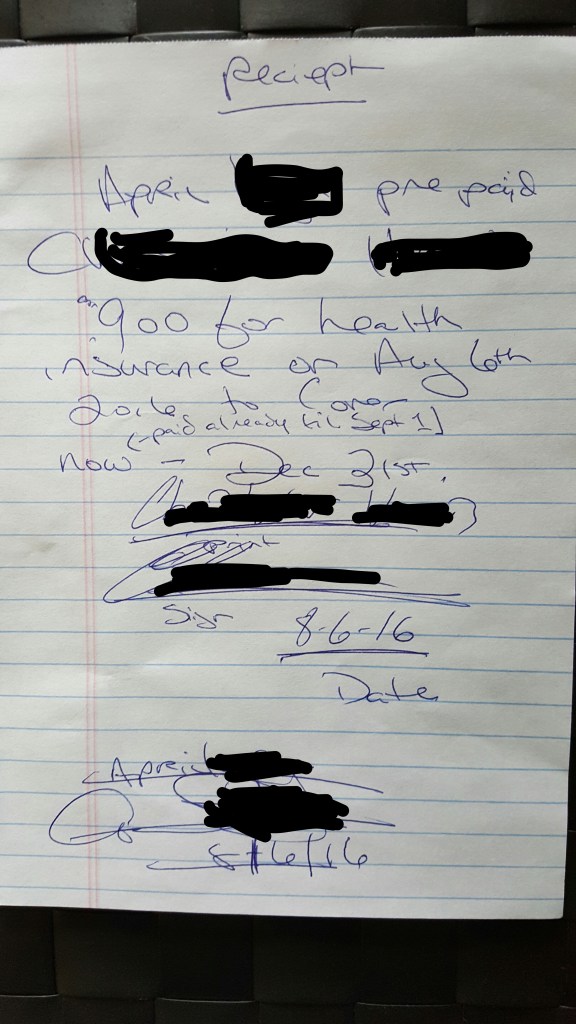 Reciept
April pre paid
900 for health
insurance on Aug 6th
2016 to Cover
(paid already til Sept 1]
now - Dec 31st.
print
Sign
8-6-16
Date
April
8/6/16